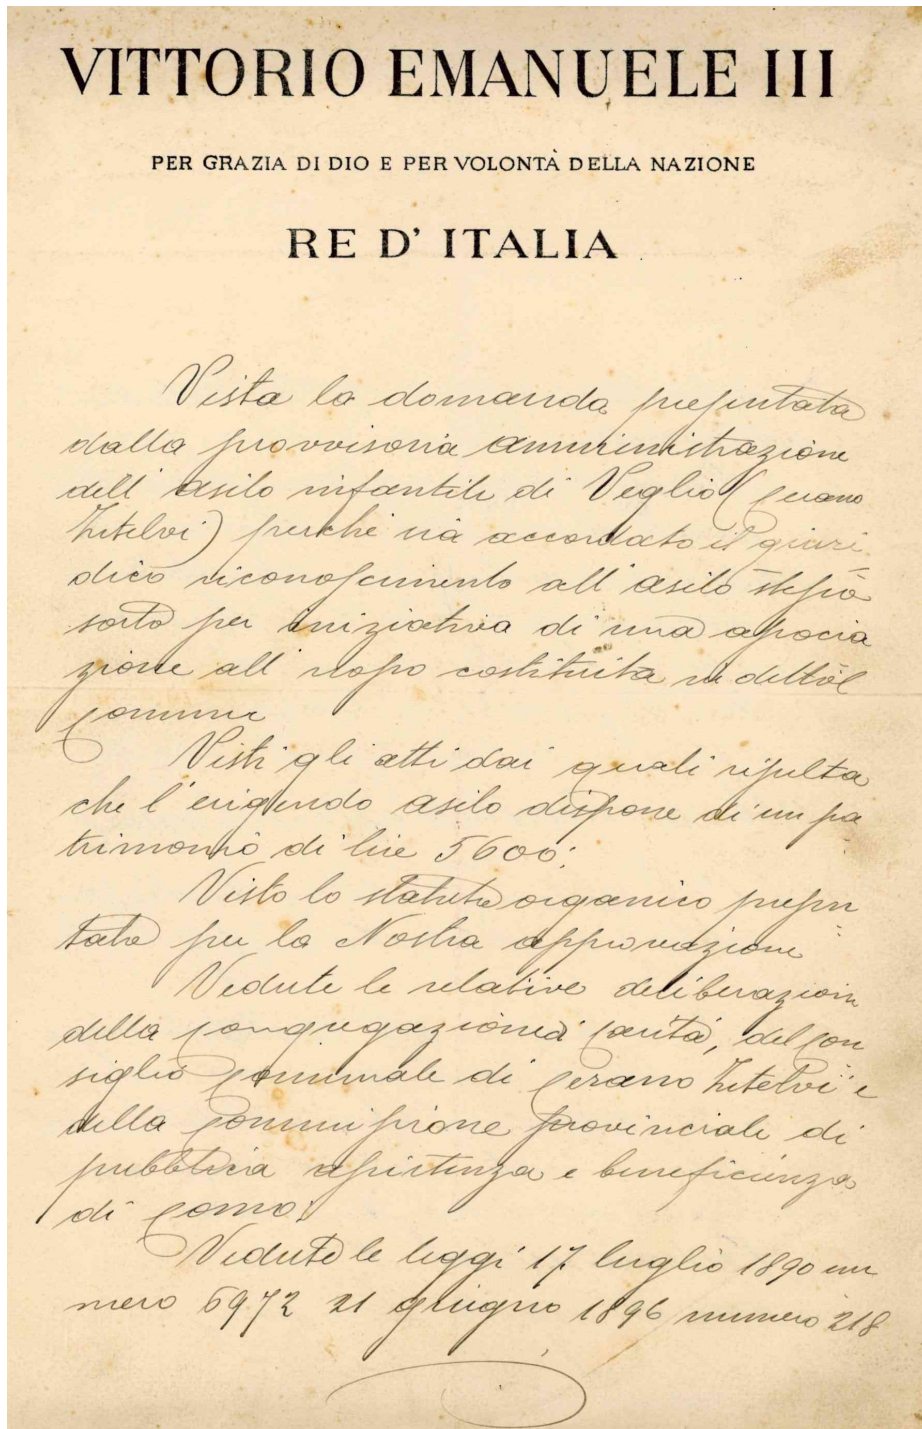 VITTORIO EMANUELE III
PER GRAZIA DI DIO E PER VOLONTÀ DELLA NAZIONE
RE D' ITALIA
Vista la domanda presentata
dalla provvisoria amministrazione
dell' asilo infantile di Veglio (Cerano
Intelvi) perchè sia accordato il giuri
dico riconoscimento all' asilo stesso
sorto per iniziativa di una associa
zione all' uopo costituita in detto
Comune
Visti gli atti dai quali risulta
che l' erigendo asilo dispone di un pa
trimonio di lire 5600;
Visto lo statuto organico presen
tato per la Nostra approvazione
Vedute le relative deliberazioni
della Congregazione di Carità, del Con
siglio Comunale di Cerano Intelvi e
della Commissione provinciale di
pubblica assistenza e beneficienza
di Como;
Vedute le leggi 17 luglio 1890 nu
mero 6972 21 giugno 1896 numero 218